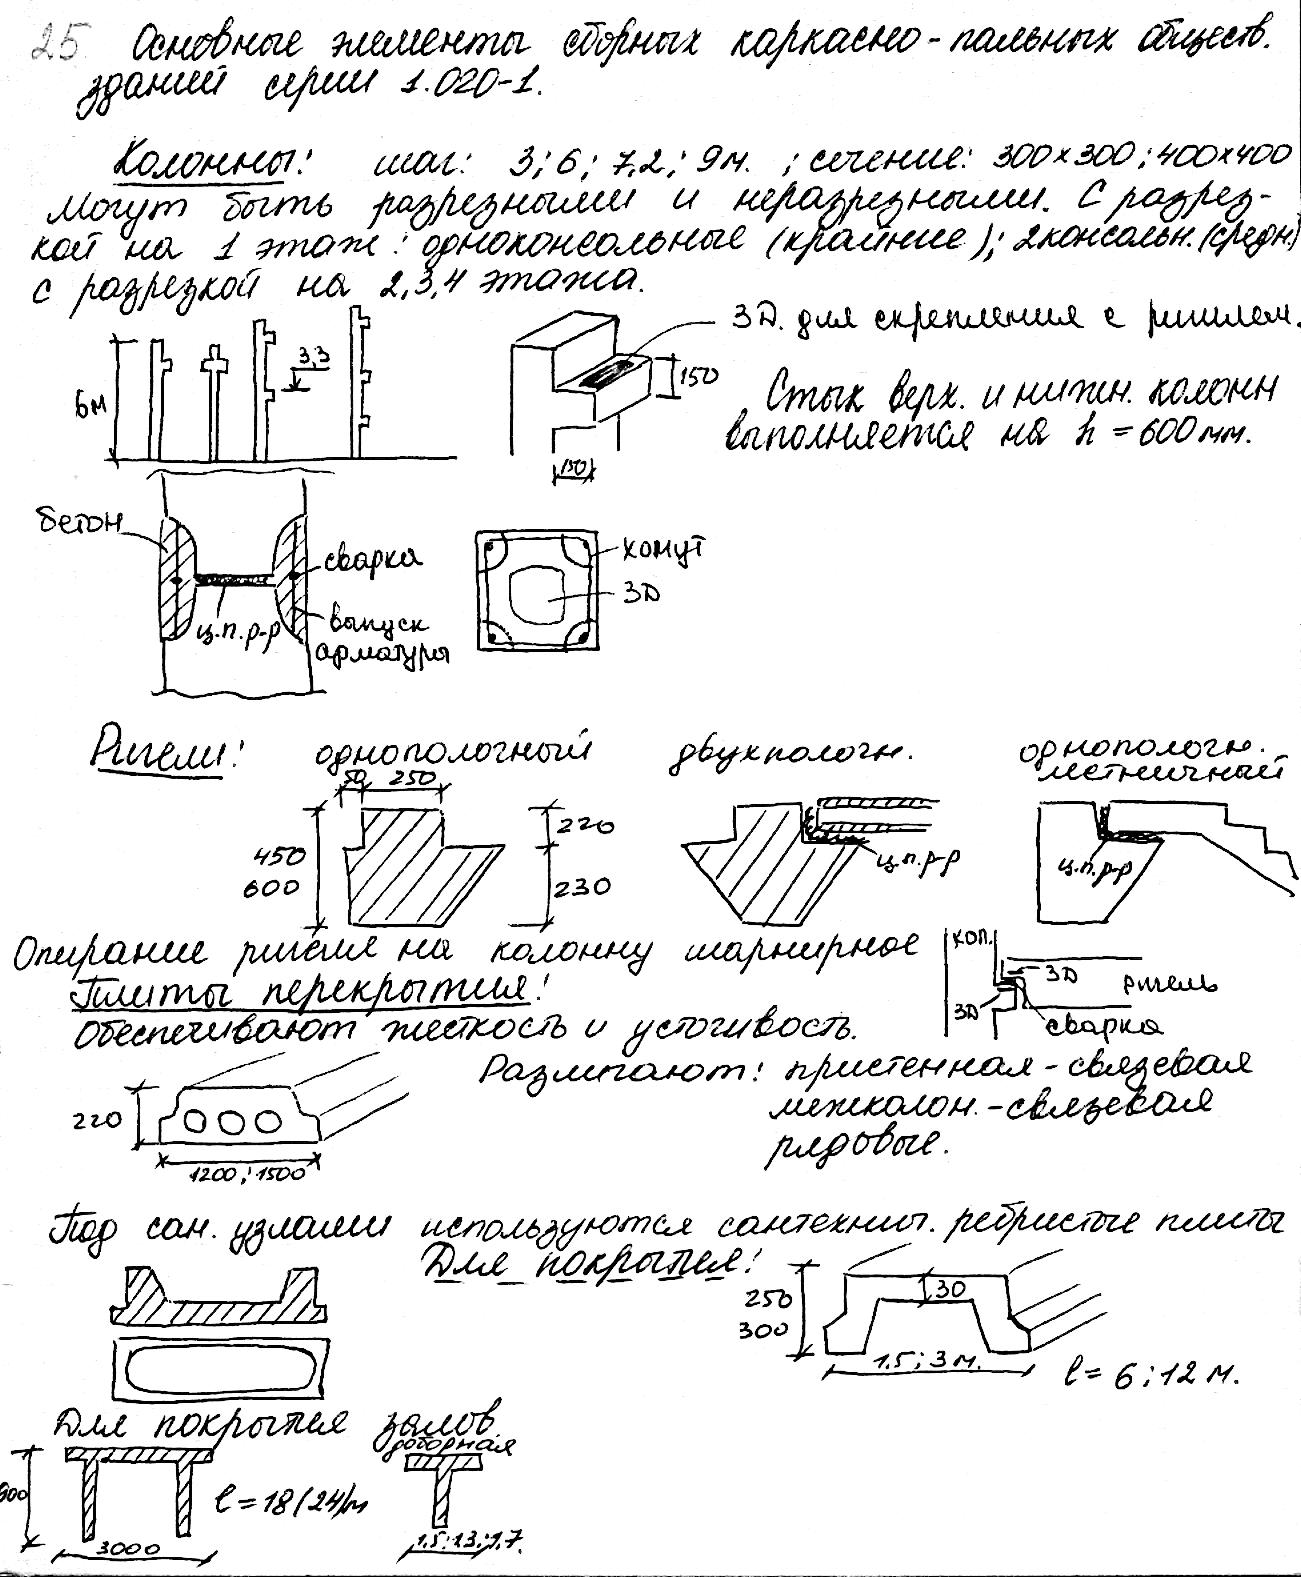 25 Основные элементы сборных каркасно-пальных обществ.
зданий серии 1.020-1.
Колонны: шаг: 3; 6; 7,2; 9м. ; сечение: 300×300; 400×400
Могут быть разрезными и неразрезными. С разрез-
кой на 1 этаж: одноконсольные (крайние); 2консольн.(средн.)
с разрезкой на 2,3,4 этажа.
ЗД. для скрепления с ригилем.
6м
3,3
150
150
Стык верх. и нижн. колонн
выполняется на h = 600мм.
бетон
сварка
ц.п.р-р
выпуск
арматуры
хомут
ЗД
Ригели: однопологный двухпологн. однопологн.
лестничный
50 250
450
600
220
230
ц.п.р-р
ц.п.р-р
Опирание ригеля на колонну шарнирное
кол.
ЗД
ригель
ЗД
сварка
Плиты перекрытия:
Обеспечивают жесткость и устогивость.
Разлигают: пристенная-связевая
межколон.-связевая
рядовые.
220
1200; 1500
Под сан. узлами используются сантехнич. ребристые плиты
Для покрытия:
250
300
30
1,5; 3м.
l= 6; 12 м.
Для покрытия залов
доборная
l = 18(24)м
3000